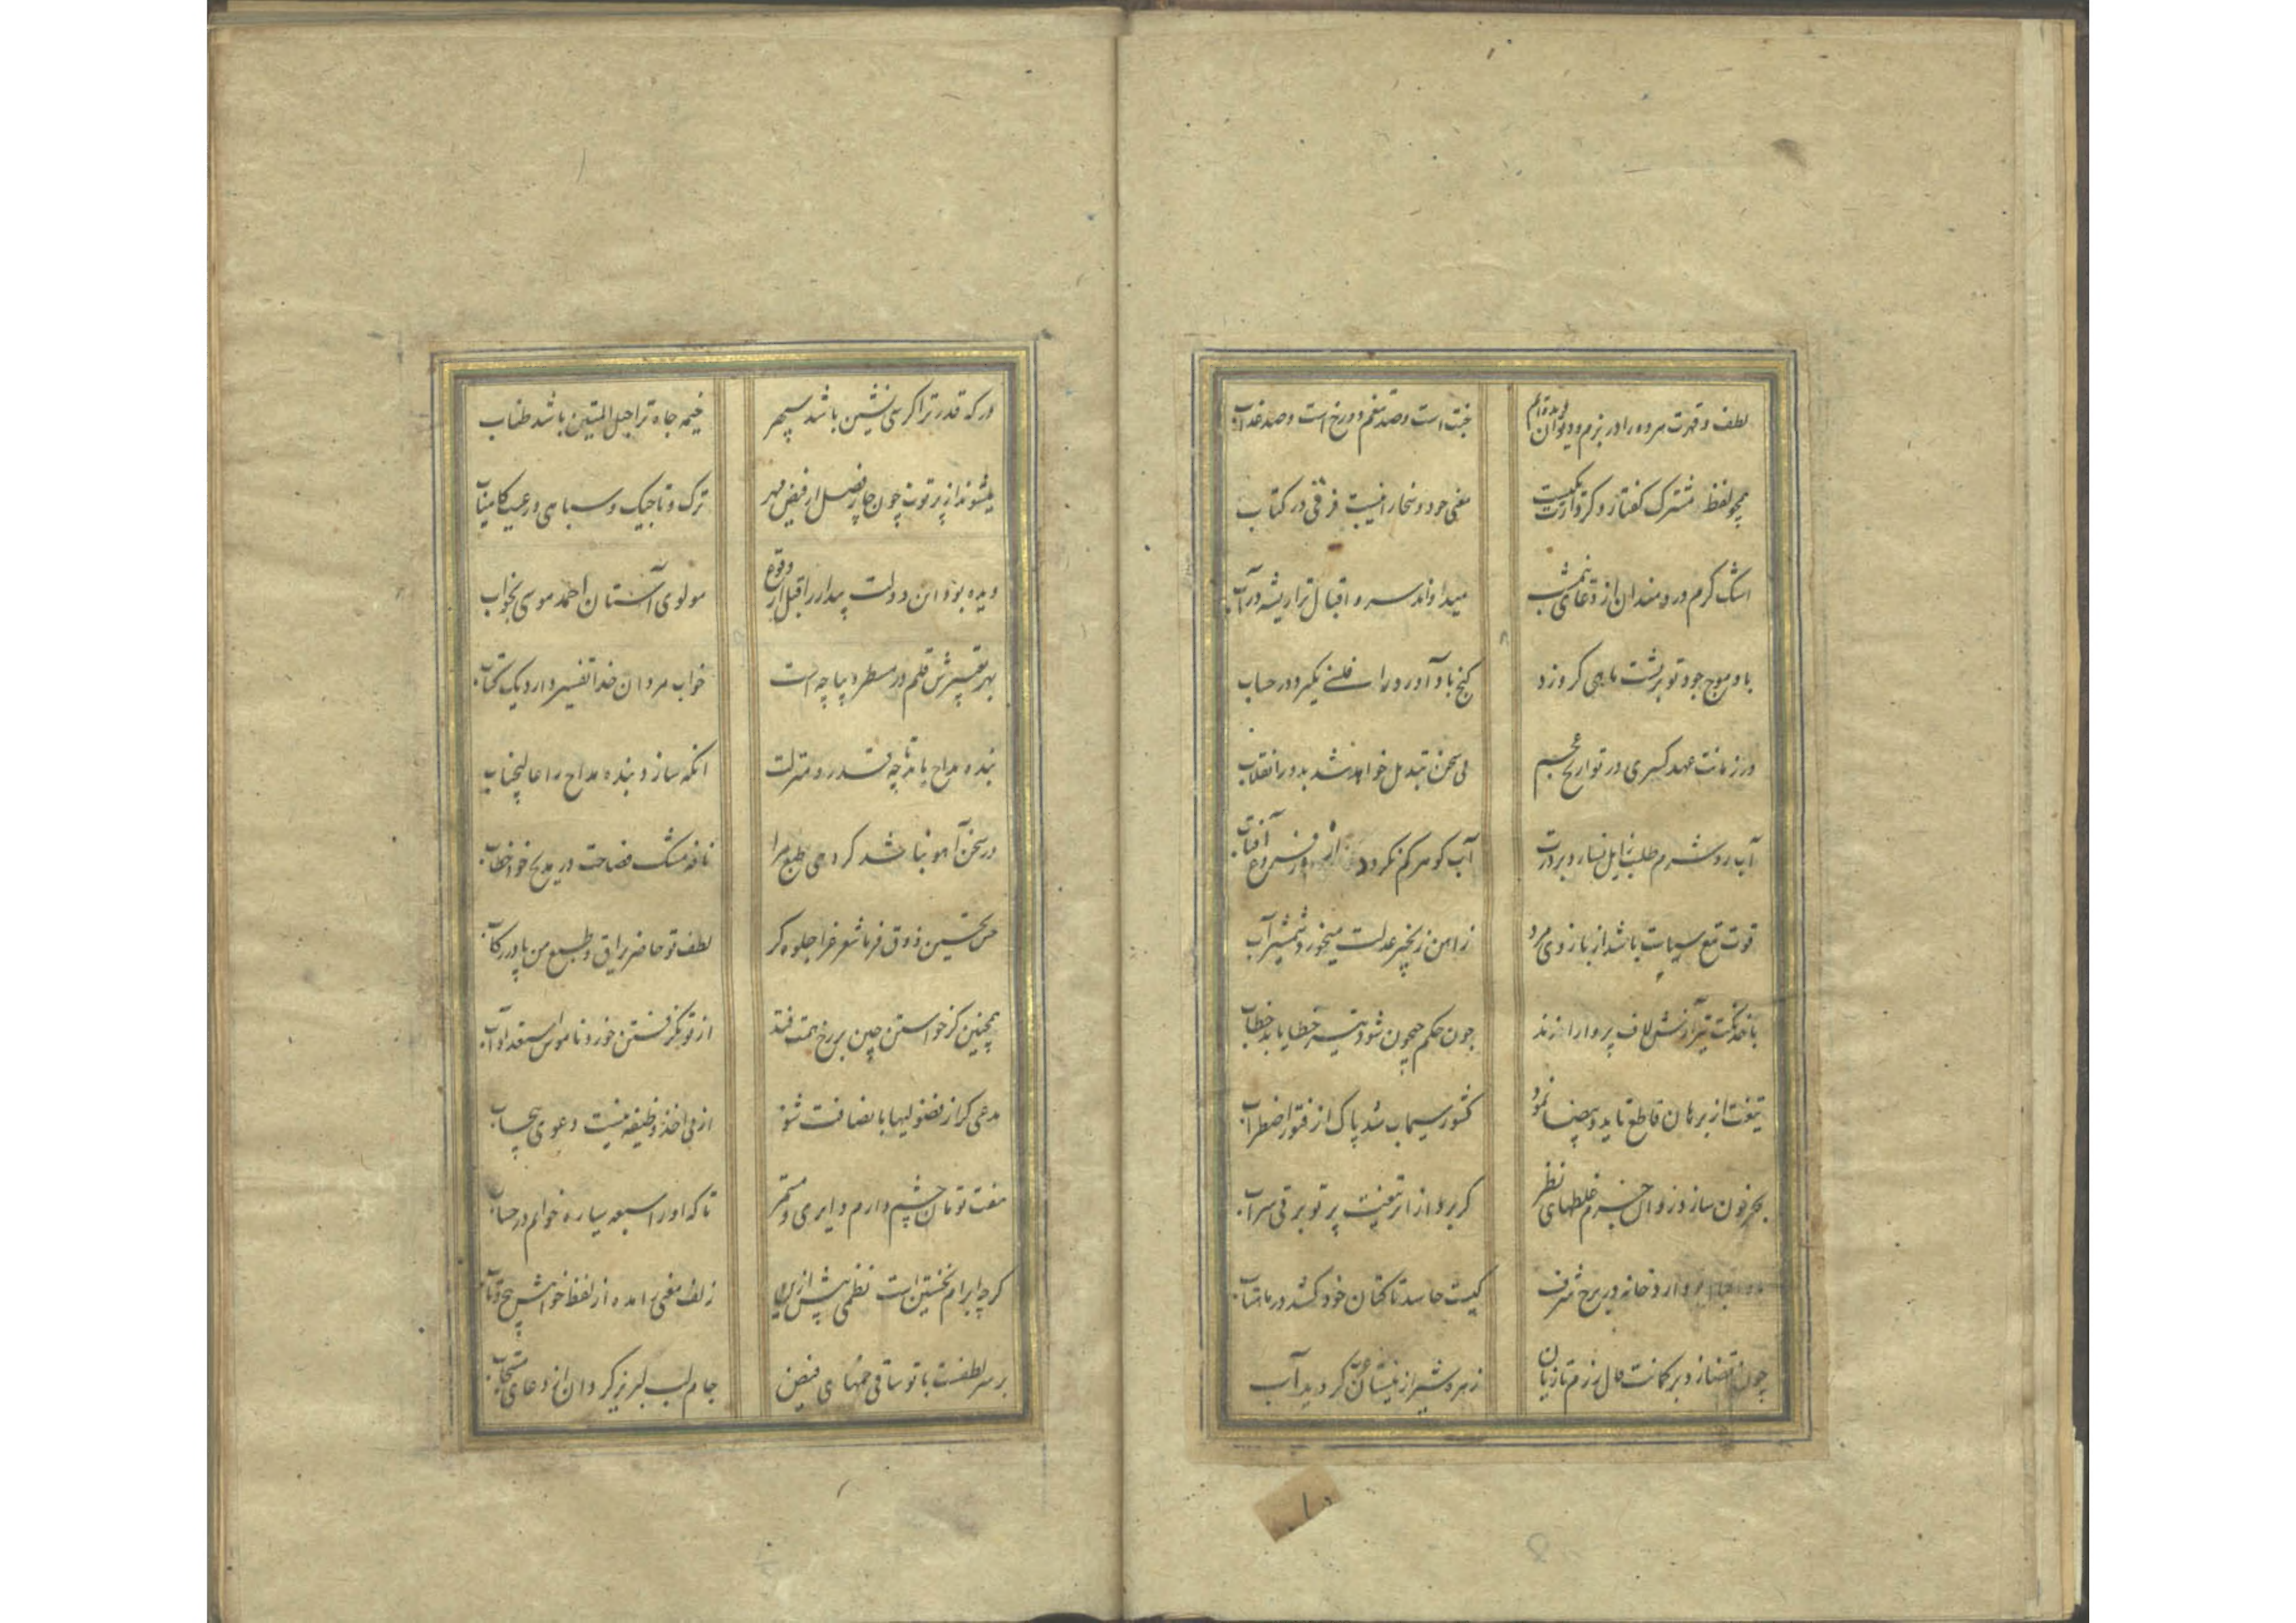 لطف و قهرت هر دو را در بزم و دیوان دیده‌ام
جنت است و صد نعیم و دوزخ است و صد عذاب
همچو لفظ مشترک گفتار و کردارت یکیست
معنی جود و سخا را نیست فرقی در کتاب
اشک گرم دردمندان از دعای نیمشب
میدواند سرو اقبال ترا ریشه در آب
باد موج جود تو بر پشت ماهی گر وزد
گنج باد آورد را فلسی نگیرد در حساب
در زمانت عهد کسری در تواریخ عجم
بی سخن تبدیل خواهد شد بدور انقلاب
آب روی شرم طلب زایل نسازد بر درت
آب گوهر کم نگردد از فروغ آفتاب
قوت تیغ سیاست باشد از بازوی مرد
ز آهن زنجیر عدلت میخورد شمشیر آب
با خدنگت تیر آرش لاف پرواز ار زند
چون حکم چون شود تیر خطا یابد خطاب
تیغت از برهان قاطع تا ید بیضا نمود
کشور سیماب شد پاک از فتور اضطراب
بحر خون سازد زوال خیزم غلطهای نظر
گر برد از اثر تیغت پرتو برقی سراب
دارد خانه در برج شرف
کیست حاسد تا کتان خود کشد در ماهتاب
چون قضا زد بر کمانت مال رزم تازیان
زهره شیر از نیستان گردید آب
درگه قدر ترا کرسی نشین باشد سپهر
خیمه جاه ترا حبل المتین باشد طناب
میشوند از پرتوت چون چار فصل از فیض مهر
ترک و تاجیک و سپاهی و رعیت کامیاب
دیده بود این دولت بیدار را قبل از وقوع
مولوی آستان احمد موسی بخواب
بهر تفسیرش قلم در مسطر دیباچه است
خواب مردان خدا تفسیر دارد یک کتاب
بنده مداح یابد تا چه قدر و منزلت
آنکه سازد بنده مداح را عالیجناب
در سخن آهو نباشد کردمی طبع مرا
نافه مشک فصاحت در مدیح خود خطاب
حسن تحسین ذوق فرما شعر غرا جلوه گر
لطف تو حاضر یراق و طبع من پا در رکاب
همچنین کز خواستن چین بر رخ همت فتد
از توبگر فتن خورد ناموس استعداد آب
مدعی کز از فضولیها با نصافت شود
از پی اخذ وظیفه نیست دعوی بیحساب
هفت تومان چشم دارم دایری و مستمر
تا که او را سبعه سیاره خوانم در حساب
گرچه ابرام نخستین است نظمی پیش ازین
زلف معنی برآمده از لفظ خواهش پیچ و تاب
بر سر لطفت با تو ساقی خمهای فیض
جام لب لبریز گردان از دعای مستجاب